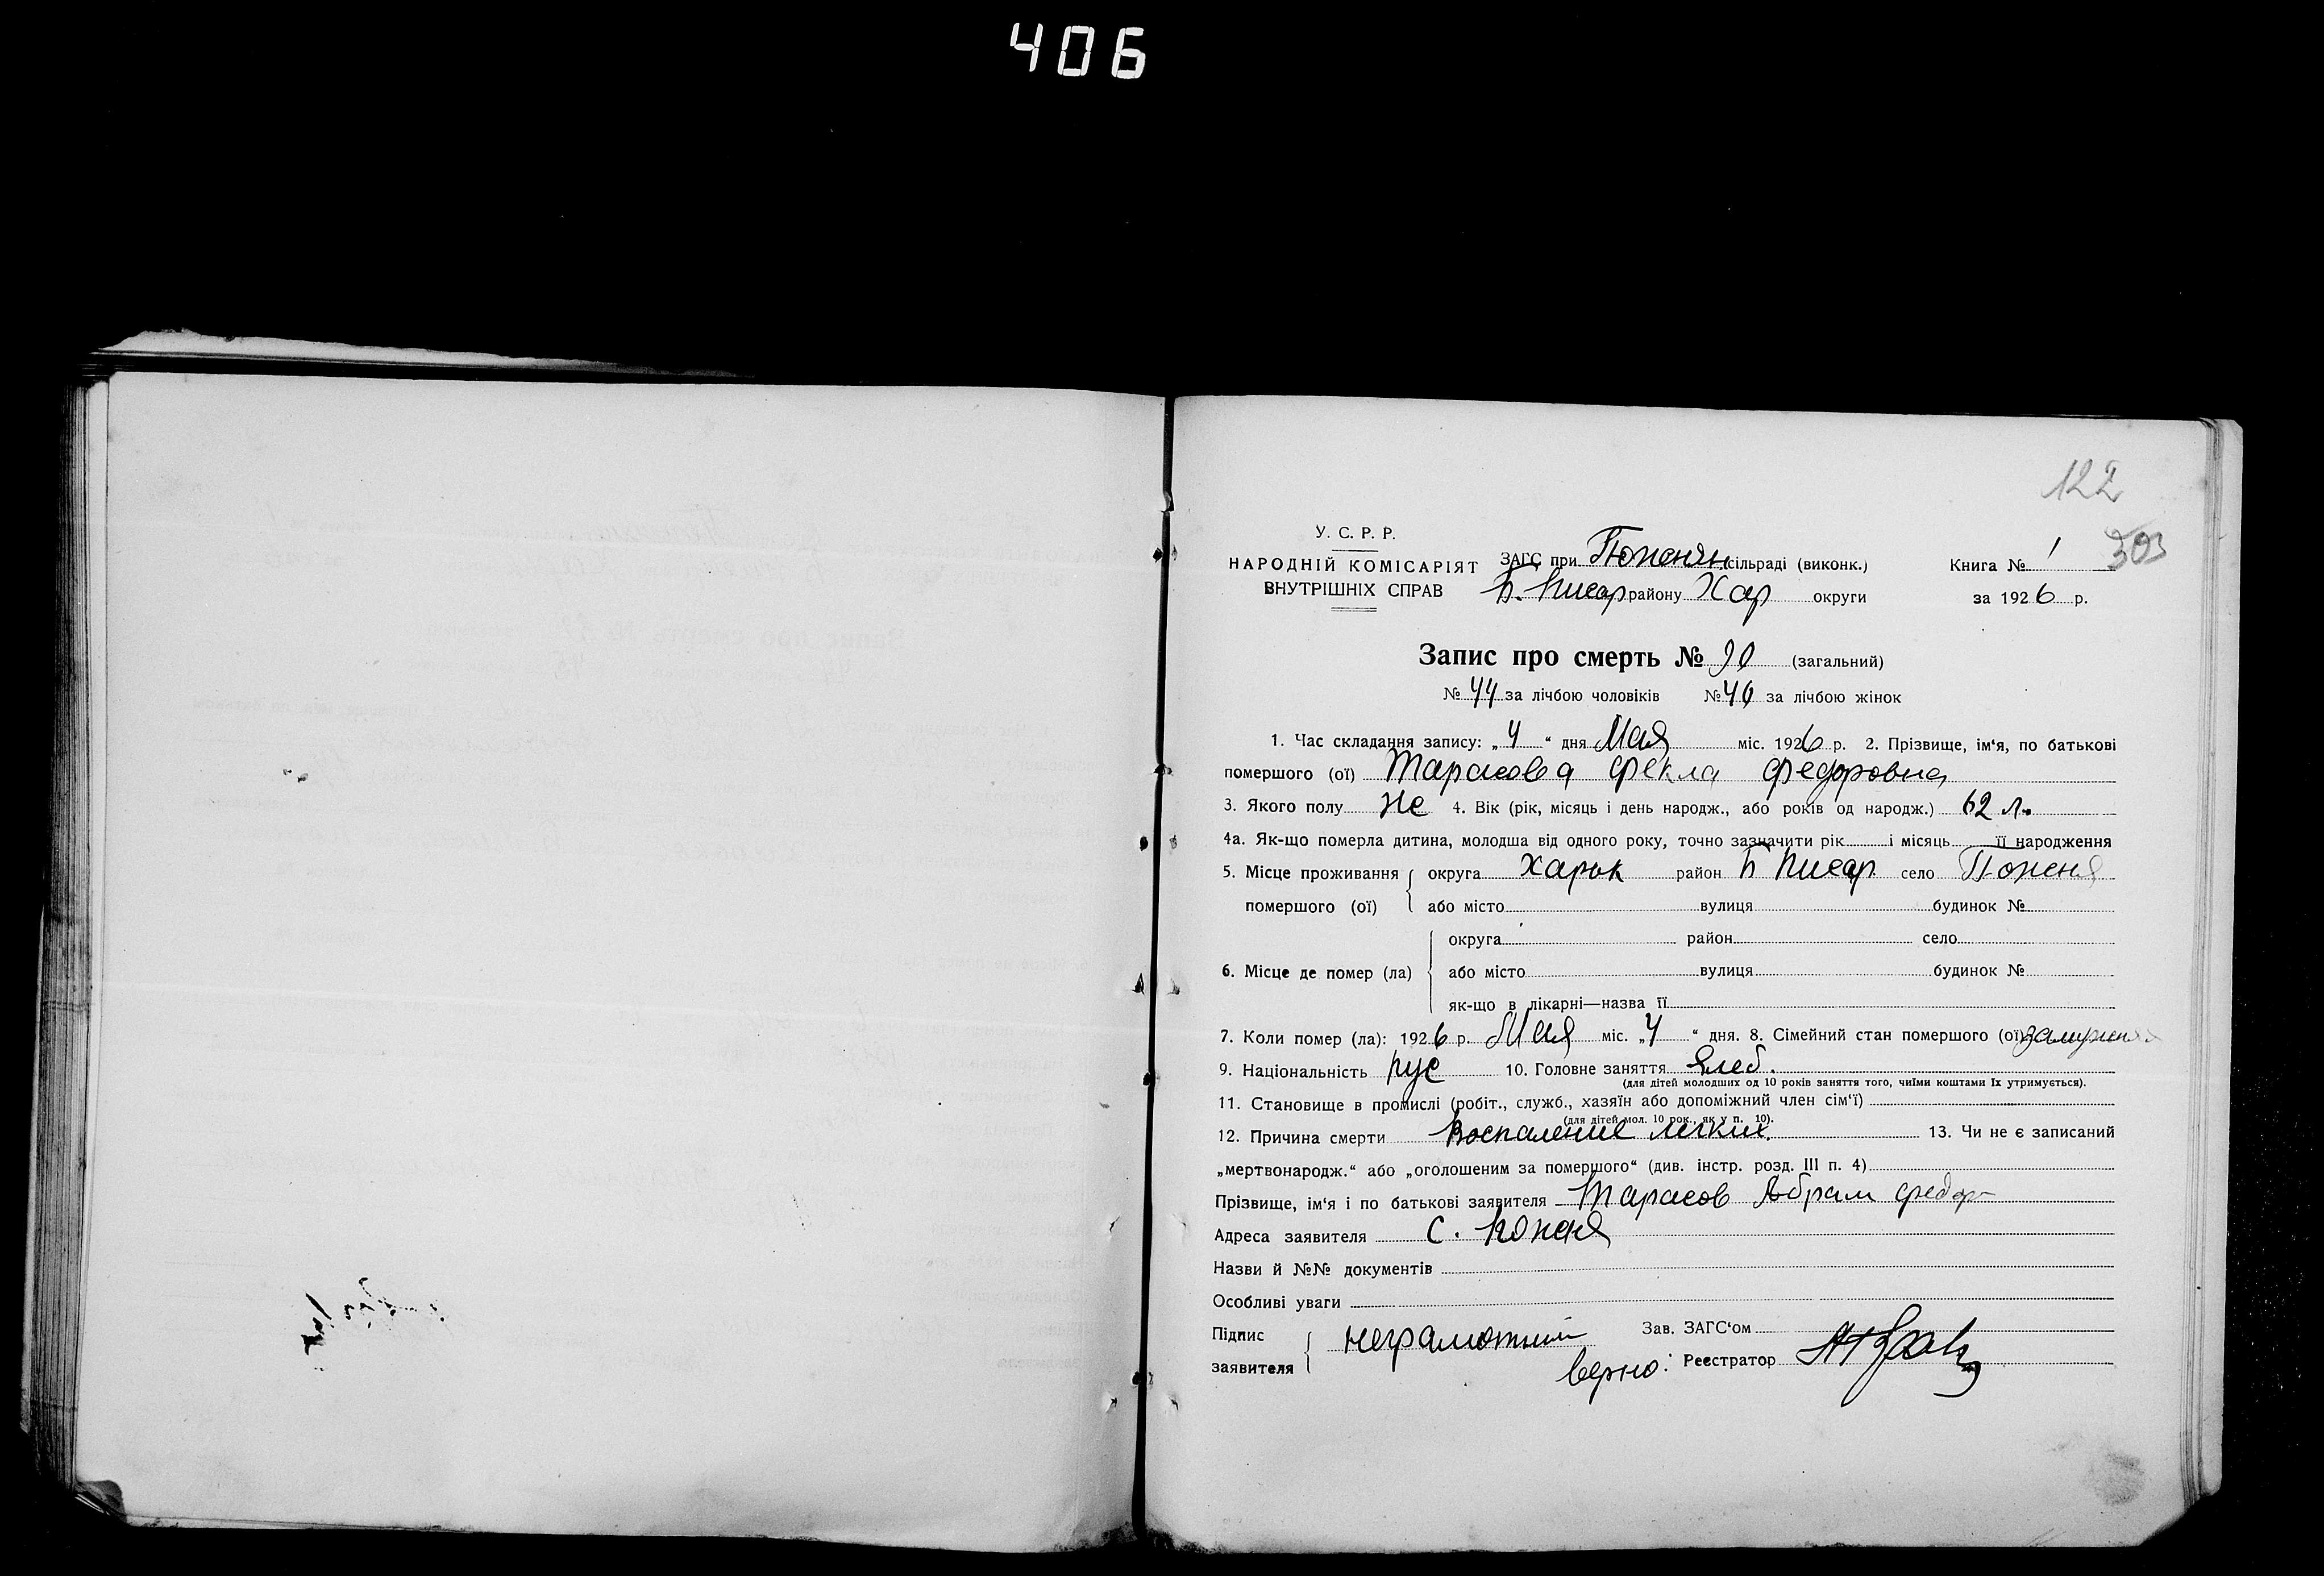 406
122
303
У. С. Р. Р.
НАРОДНІЙ КОМІСАРІЯТ
ВНУТРІШНІХ СПРАВ
ЗАГС при Тюненян сільраді (виконк.)
Б. Писар району Хар округи
Книга № 1
за 1926 р.
Запис про смерть № 90 (загальний)
№ 44 за лічбою чоловіків № 46 за лічбою жінок
1. Час складання запису: „4“ дня Мая міс. 1926 р. 2. Прізвище, ім'я, по батькові
помершого (ої) Тарасова Фекла Федоровна
3. Якого полу же 4. Вік (рік, місяць і день народж., або років од народж.) 62 л.
4а. Як-що померла дитина, молодша від одного року, точно зазначити рік і місяць її народження
5. Місце проживання помершого (ої) округа Харьк район Б Писар село
або місто вулиця будинок №
6. Місце де помер (ла) округа район село
або місто вулиця будинок №
як-що в лікарні—назва її
7. Коли помер (ла): 1926 р. Мая міс. „4“ дня. 8. Сімейний стан помершого (ої) замужняя
9. Національність рус 10. Головне заняття хлеб.
(для дітей молодших од 10 років заняття того, чиїми коштами їх утримується).
11. Становище в промислі (робіт., служб., хазяїн або допоміжний член сім'ї)
(для дітей мол. 10 рок., як у п. 10).
12. Причина смерти Воспаление легких. 13. Чи не є записаний
„мертвонародж.“ або „оголошеним за помершого“ (див. інстр. розд. III п. 4)
Прізвище, ім'я і по батькові заявителя Тарасов Абрам Федор
Адреса заявителя с.
Назви й №№ документів
Особливі уваги
Підпис заявителя неграмотний
Зав. ЗАГС'ом
верно: Реєстратор